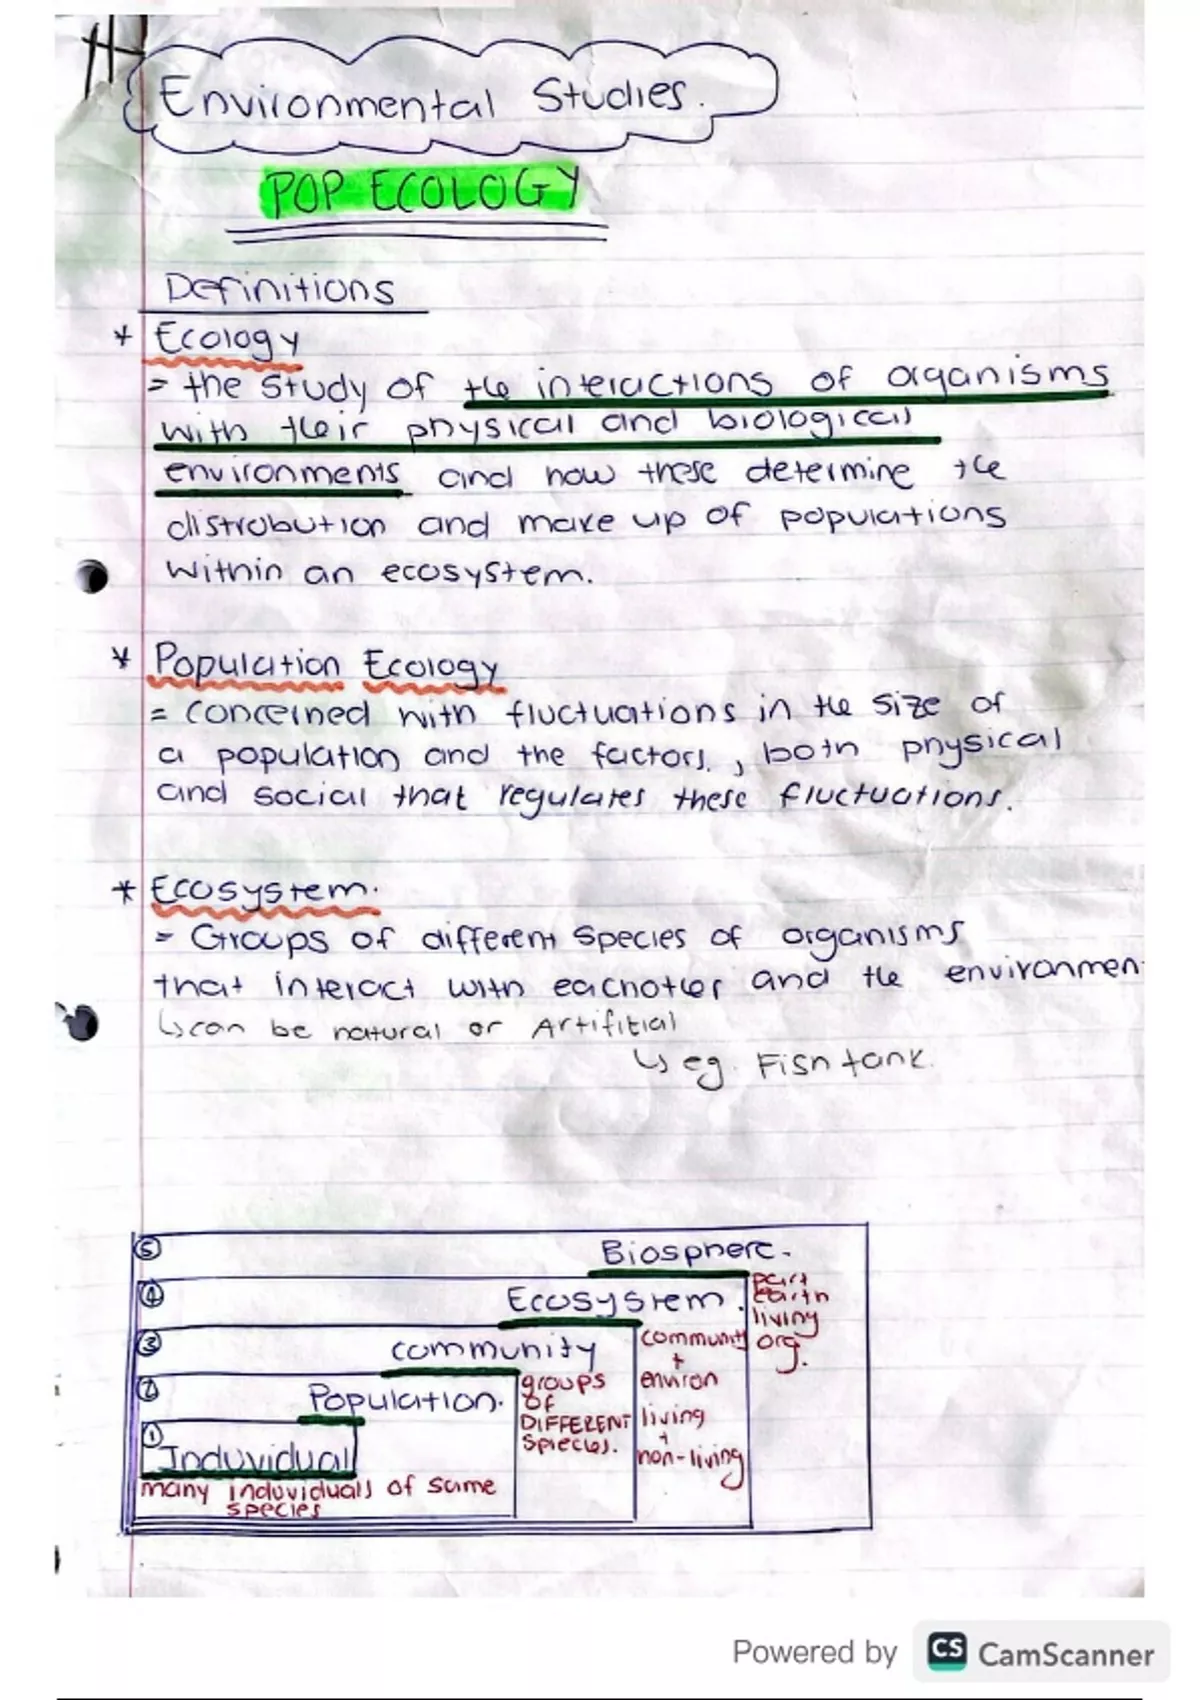 Environmental Studies.
POP ECOLOGY
Definitions
* Ecology
= the study of the interactions of organisms
with their physical and biological
environments and how these determine the
distrobution and make up of populations
within an ecosystem.
* Population Ecology
= concerned with fluctuations in the size of
a population and the factors, both physical
and social that regulates these fluctuations.
* Ecosystem.
= Groups of different species of organisms
that interact with eachother and the environmen
↳ can be natural or Artifitial
↳ eg. Fish tank.
⑤ Biosphere.
part
earth
living
org.
④ Ecosystem.
community
+
environ
living
+
non-living
③ community
groups
of
DIFFERENT
species.
② Population.
① Induvidual
many induviduals of same
species
Powered by CS CamScanner